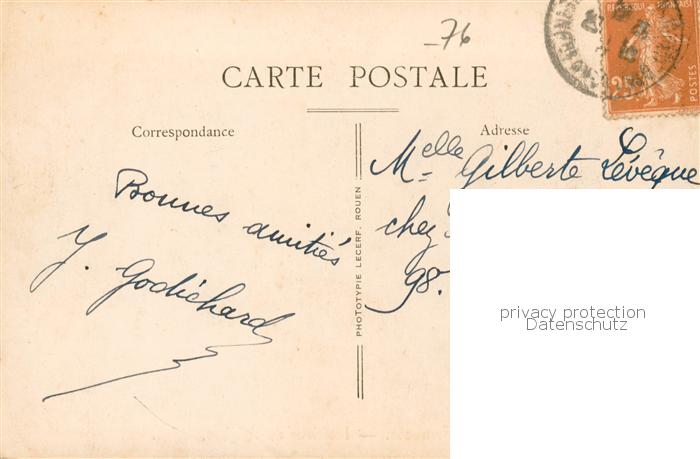 -76
CARTE POSTALE
Correspondance
Adresse
Bonnes amitiés
Y. Godichard
PHOTOTYPIE LECERF. ROUEN
Melle Gilberte Lévêque
chez
98.
REPUBLIQUE FRANÇAISE
25
POSTES
privacy protection
Datenschutz